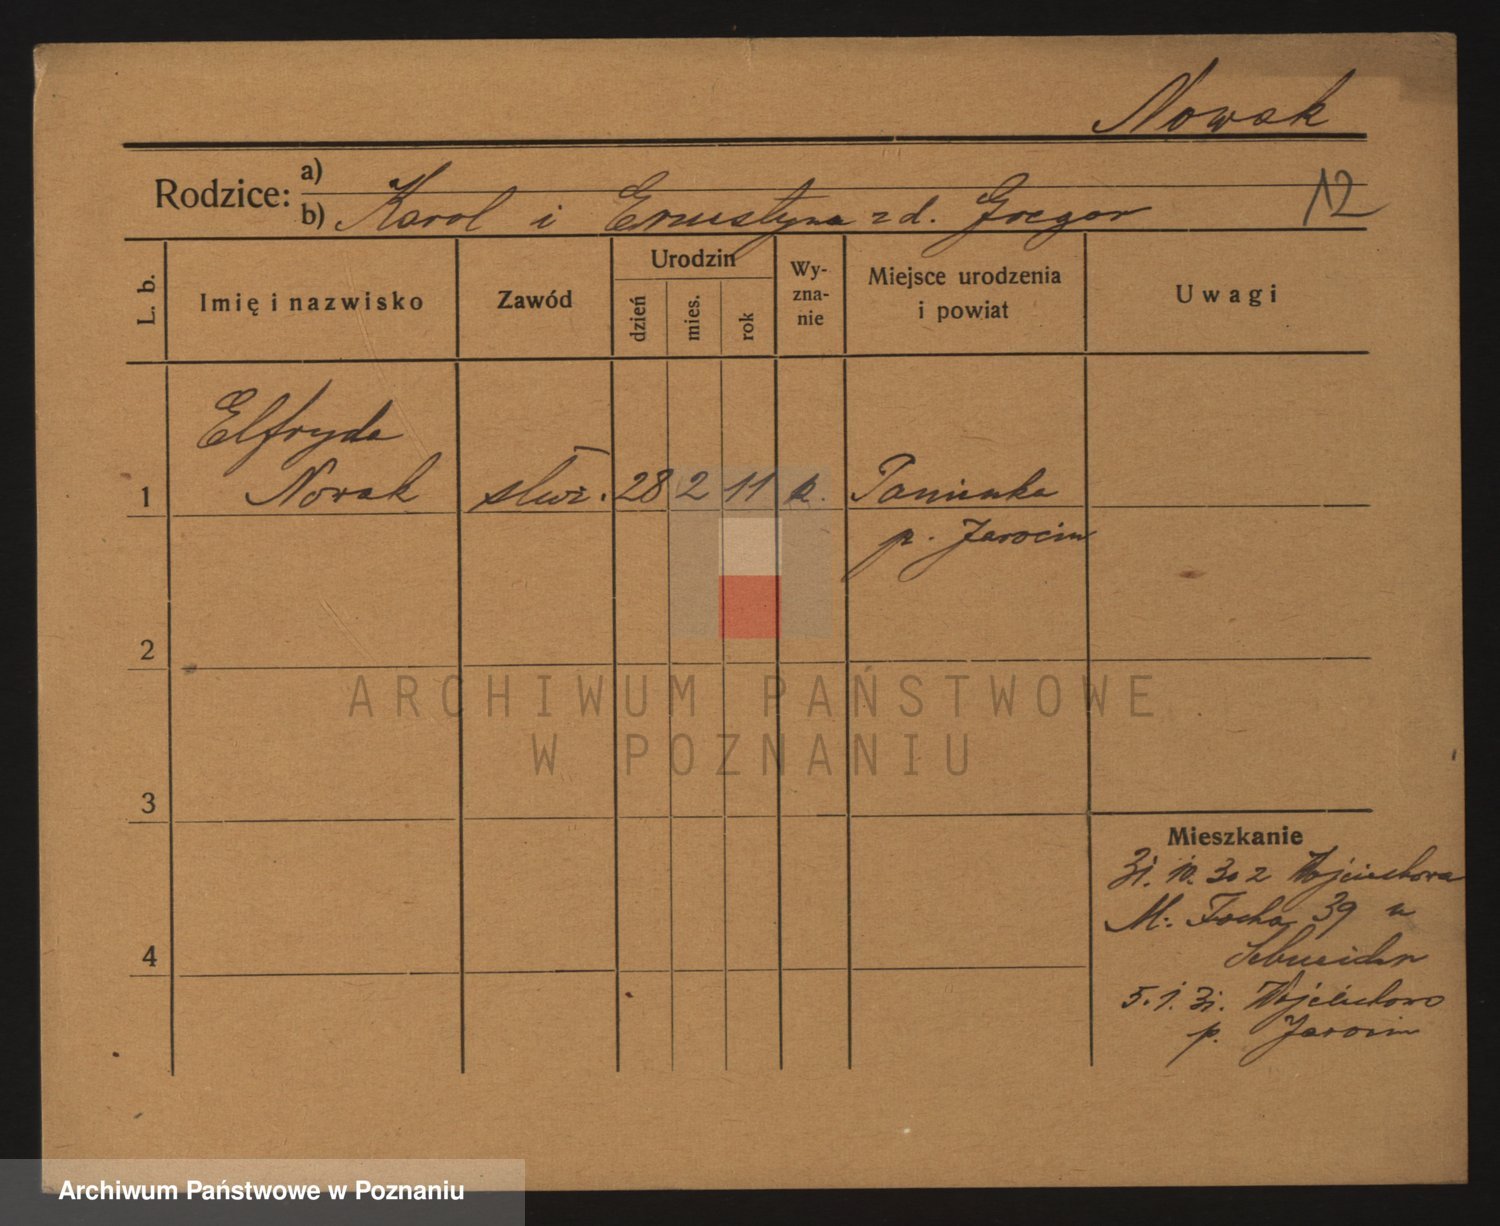 Nowak
Rodzice: a)
b) Karol i Ernestyna z d. Gregor
12
L. b.
Imię i nazwisko
Zawód
Urodzin
dzień
mies.
rok
Wy-
zna-
nie
Miejsce urodzenia
i powiat
Uwagi
Elfryda
1 Nowak służ. 28 2 11 k. Panienka
p. Jarocin
2
ARCHIWUM PAŃSTWOWE
W POZNANIU
3
Mieszkanie
31. 10. 30 z Wojciechowa
M. Focha 39 u
4
Schneider
5. 1. 31. Wojciechowo
p. Jarocin
Archiwum Państwowe w Poznaniu